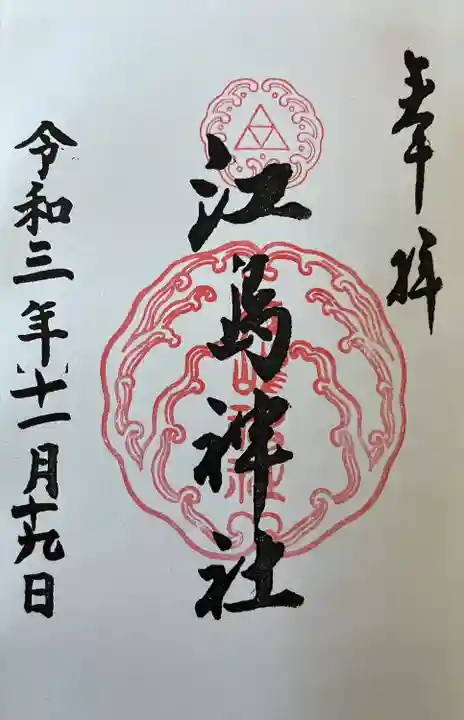 奉拝
江島神社
令和三年十一月十九日